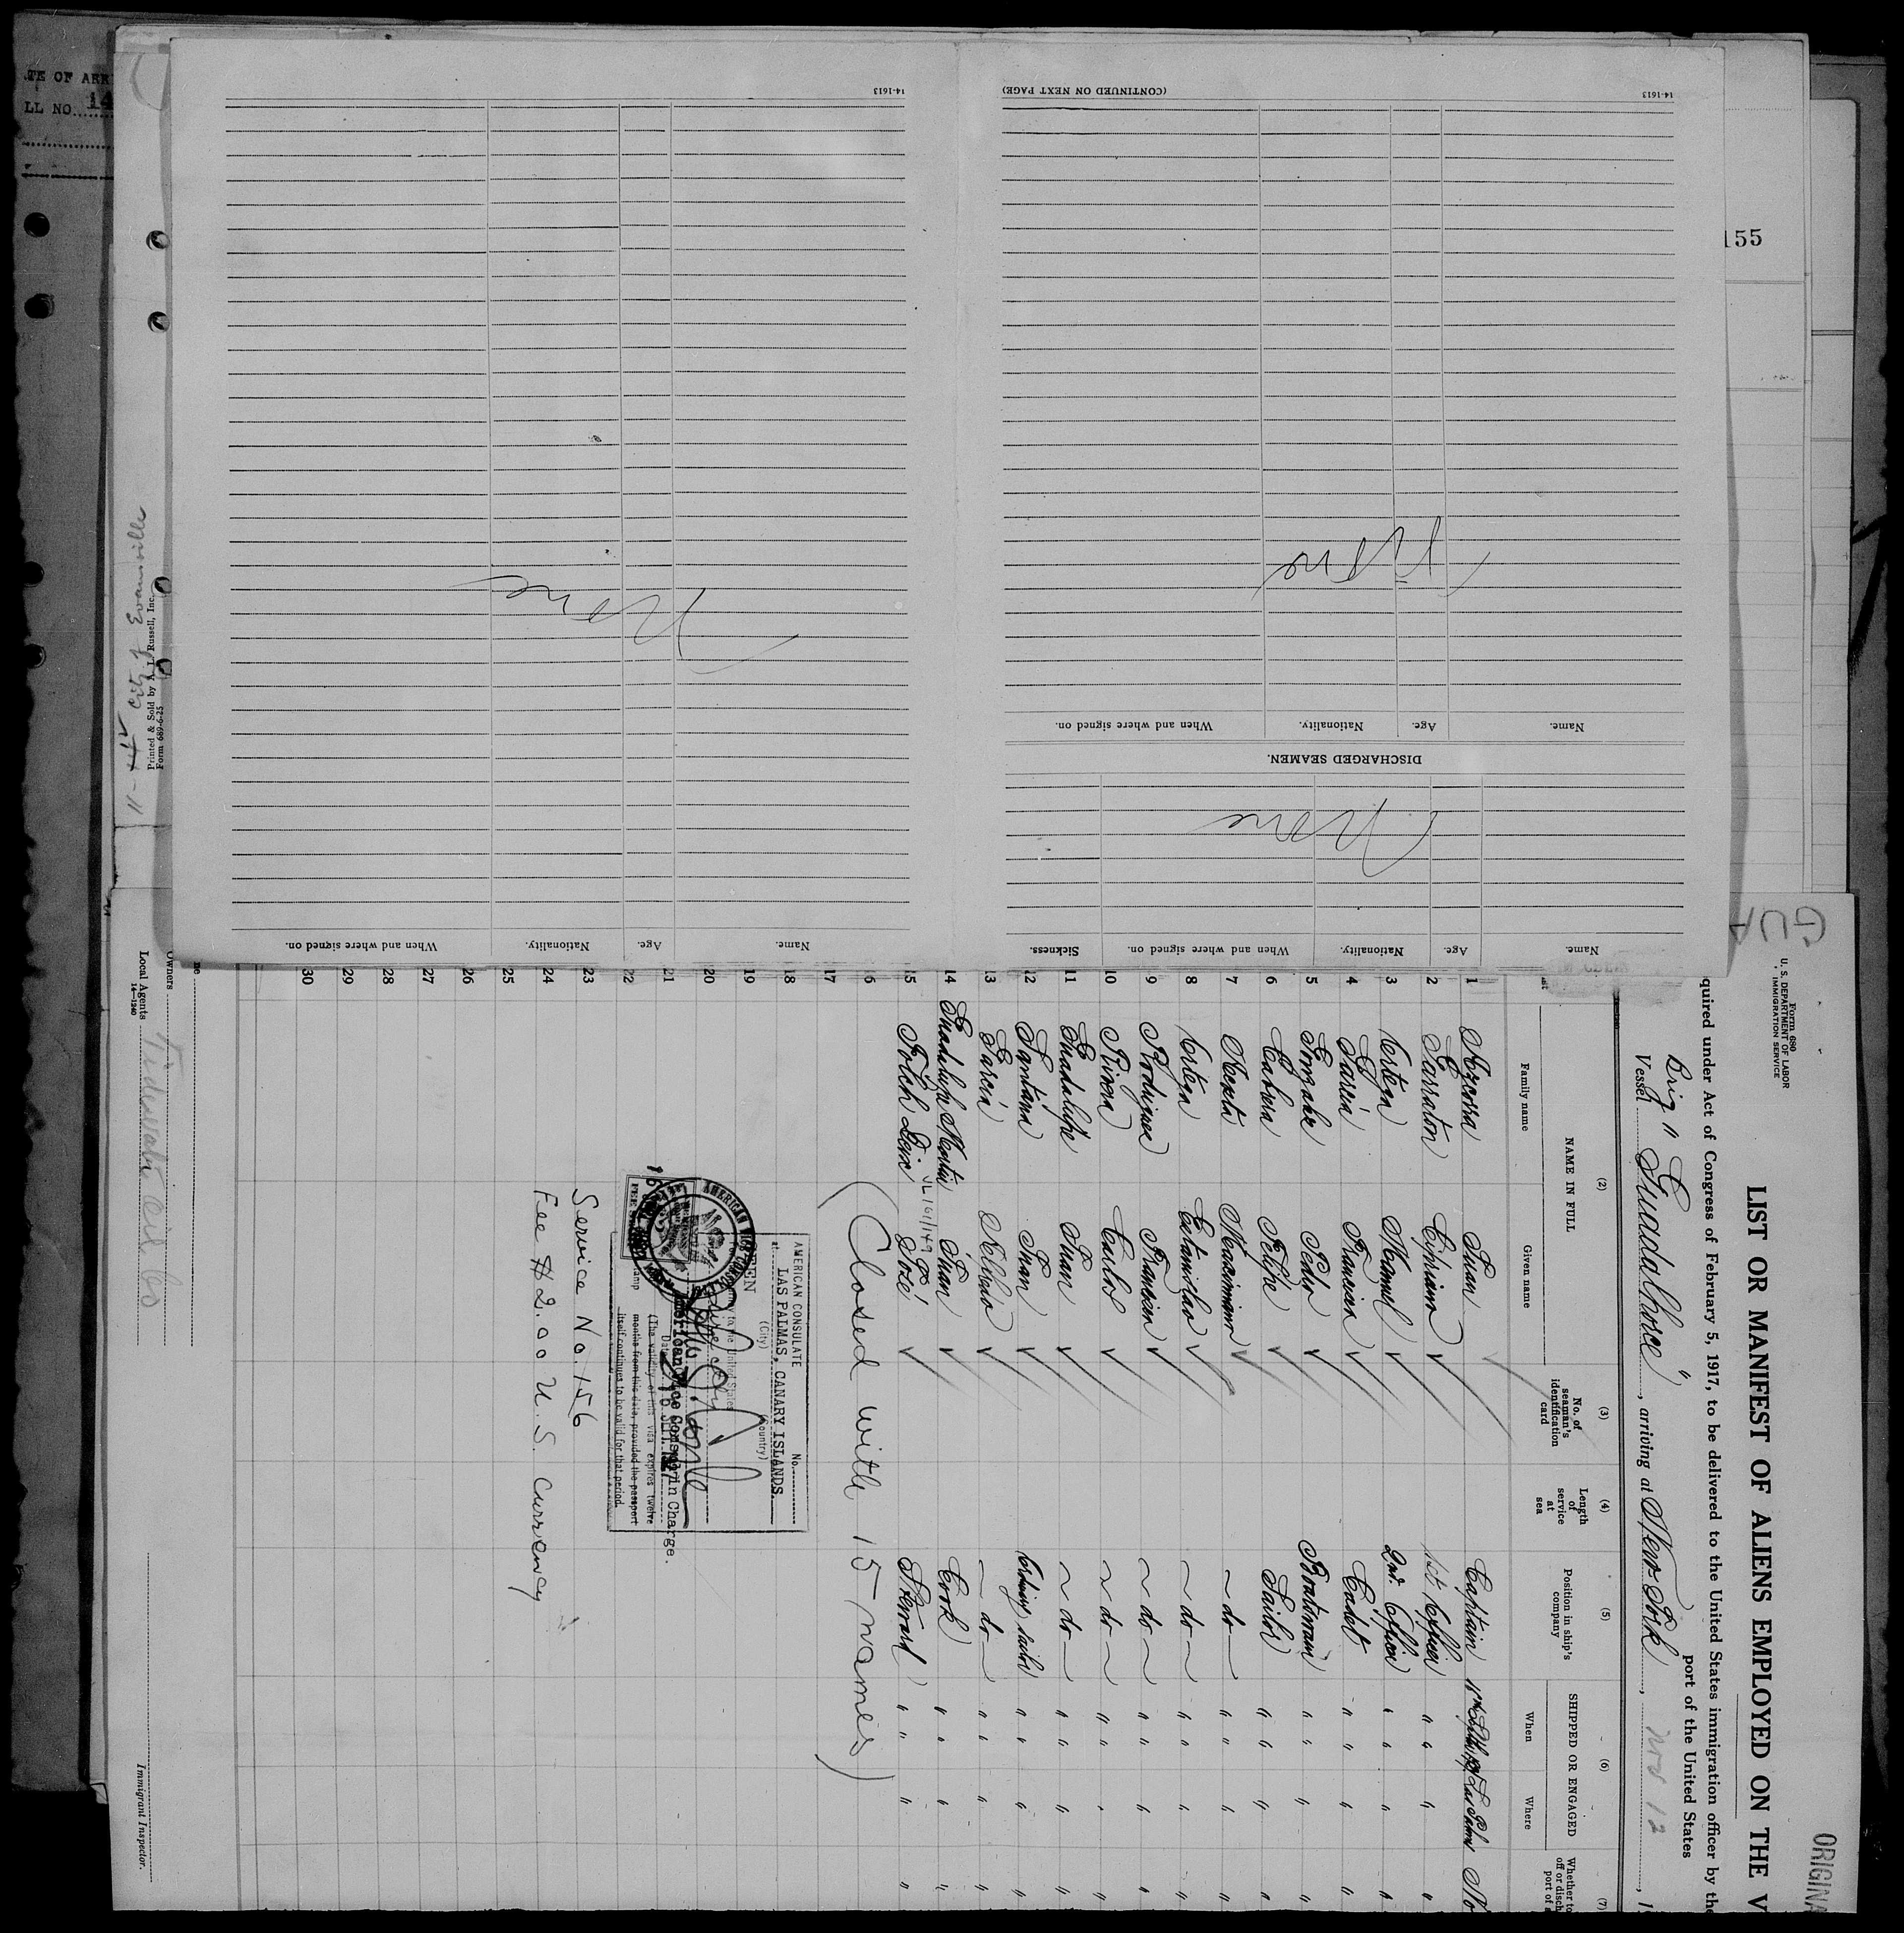 TE OF ARR
LL NO. 14
155
(CONTINUED ON NEXT PAGE)
14-1613
14-1613
None
None
Name.
Age.
Nationality.
When and where signed on.
DISCHARGED SEAMEN.
None
Name.
Age.
Nationality.
When and where signed on.
Sickness.
Name.
Age.
Nationality.
When and where signed on.
11-
City of Evansville
Printed & Sold by A. J. Russell, Inc.
Form 689-6-25
GUA
ORIGINA
Form 680
U. S. DEPARTMENT OF LABOR
IMMIGRATION SERVICE
LIST OR MANIFEST OF ALIENS EMPLOYED ON THE V
quired under Act of Congress of February 5, 1917, to be delivered to the United States immigration officer by the
port of the United States
Vessel Brig "Guadalhorce", arriving at New York, Nov 12, 1
(2)
NAME IN FULL
Family name
Given name
(3)
No. of seaman's identification card
(4)
Length of service at sea
(5)
Position in ship's company
(6)
SHIPPED OR ENGAGED
When
Where
(7)
Whether to
off or disch
port of a
1 Juan Captain Las Palmas No
2 Garraton Cipriano 1st Officer " " " "
3 Ortega Manuel 2nd Officer " " " "
4 Garcia Francisco Cadet " " " "
5 Gonzalez Pedro Boatswain " " " "
6 Cabrera Felipe Sailor " " " "
7 Acosta Maximiano - do - " " " "
8 Ortega Estanislao - do - " " " "
9 Rodriguez Francisco - do - " " " "
10 Rivera Carlos - do - " " " "
11 Guadalupe Juan - do - " " " "
12 Santana Juan Ordinary sailor " " " "
13 Garcia - do - " " " "
14 Guadalupe Martin Juan Cook " " " "
VL 161/149
15 José Steward " " " "
16
(Closed with 15 names)
17
18
19
20
21
22
23
24
25
26
27
28
29
30
AMERICAN CONSULATE No.
LAS PALMAS, CANARY ISLANDS.
(City) (Country)
SEEN
to the United States
American Vice Consul in Charge.
Date 16 SEP. 1927
(The validity of this visa expires twelve
months from this date, provided the passport
itself continues to be valid for that period.
AMERICAN VICE CONSUL
Service No. 156
Fee $2.00 U.S. Currency
Owners
Local Agents Tidewater Oil Co
14-1240
Immigrant Inspector.